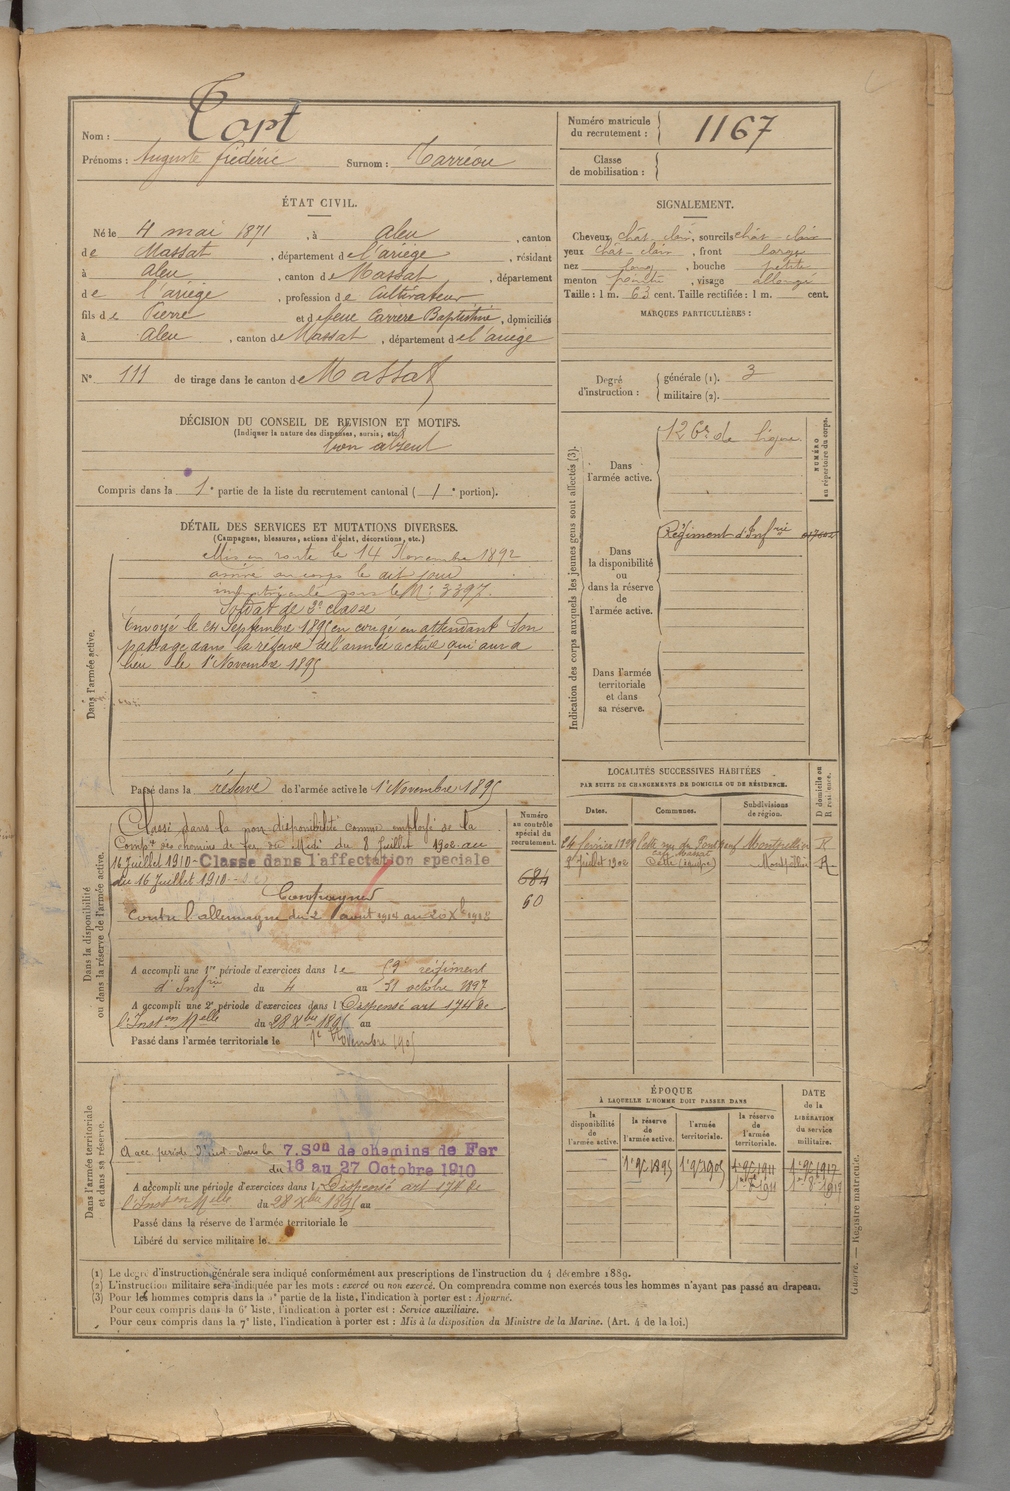 Nom : Tort
Prénoms : Auguste frédéric Surnom : Tarréou
Numéro matricule du recrutement : 1167
Classe de mobilisation :
ÉTAT CIVIL.
Né le 4 mai 1871, à aleu, canton
de Massat, département de l'ariège, résidant
à aleu, canton de Massat, département
de l'ariège, profession de Cultivateur
fils de Pierre et de feue Carrere Baptistine, domiciliés
à aleu, canton de Massat, département de l'ariège
N° 111 de tirage dans le canton de Massat
DÉCISION DU CONSEIL DE REVISION ET MOTIFS.
(Indiquer la nature des dispenses, sursis, etc.)
bon absent
Compris dans la 1e partie de la liste du recrutement cantonal ( 1e portion).
SIGNALEMENT.
Cheveux chât-clair, sourcils chât-clair
yeux chât-clair, front large
nez long, bouche petite
menton pointu, visage allongé
Taille : 1 m. 63 cent. Taille rectifiée : 1 m. cent.
MARQUES PARTICULIÈRES :
Degré d'instruction : générale (1). 3
militaire (2).
DÉTAIL DES SERVICES ET MUTATIONS DIVERSES.
(Campagnes, blessures, actions d'éclat, décorations, etc.)
Dans l'armée active.
Mis en route le 14 Novembre 1892
arrivé au corps le dit jour
immatriculé sous le N° 3397.
Soldat de 2e classe
Envoyé le 24 Septembre 1895 en congé en attendant son
passage dans la réserve de l'armée active qui aura
lieu le 1er Novembre 1895
Passé dans la réserve de l'armée active le 1er Novembre 1895
Indication des corps auxquels les jeunes gens sont affectés (3).
NUMÉRO au répertoire du corps.
Dans l'armée active.
126e de ligne
Dans la disponibilité ou dans la réserve de l'armée active.
Régiment d'Infrie
Dans l'armée territoriale et dans sa réserve.
Dans la disponibilité ou dans la réserve de l'armée active.
Numéro au contrôle spécial du recrutement.
Classé dans la non disponibilité comme employé de la
Compie des chemins de fer du Midi du 8 Juillet 1902 au
16 Juillet 1910 - Classé dans l'affectation spéciale
du 16 Juillet 1910
684
60
Campagnes
contre l'allemagne du 2 août 1914 au 20 Xbre 1918
A accompli une 1re période d'exercices dans le 59 régiment
d'Infrie du 4 au 31 octobre 1897
A accompli une 2e période d'exercices dans l Dispensé art 174 de
l'Inston Melle du 28 Xbre 1895 au
Passé dans l'armée territoriale le 1er Novembre 1905
LOCALITÉS SUCCESSIVES HABITÉES
PAR SUITE DE CHANGEMENTS DE DOMICILE OU DE RÉSIDENCE.
Dates. Communes. Subdivisions de région. D domicile ou R résidence.
24 février 1898 Cette rue du Pont neuf Montpellier R
8 Juillet 1902 Cette Montpellier R
Dans l'armée territoriale et dans sa réserve.
A acc période d'inst. dans la 7. Son de chemins de Fer
du 16 au 27 Octobre 1910
A accompli une période d'exercices dans l Dispensé art 174 de
l'Inston Melle du 28 Xbre 1895 au
Passé dans la réserve de l'armée territoriale le
Libéré du service militaire le
ÉPOQUE
À LAQUELLE L'HOMME DOIT PASSER DANS
la disponibilité de l'armée active.
la réserve de l'armée active.
l'armée territoriale.
la réserve de l'armée territoriale.
DATE de la LIBÉRATION du service militaire.
1er 9bre 1895 1er 9bre 1905 1er 9bre 1911 1er 9bre 1917
1er 8bre 1911 1er 8bre 1917
(1) Le degré d'instruction générale sera indiqué conformément aux prescriptions de l'instruction du 4 décembre 1889.
(2) L'instruction militaire sera indiquée par les mots : exercé ou non exercé. On comprendra comme non exercés tous les hommes n'ayant pas passé au drapeau.
(3) Pour les hommes compris dans la 5e partie de la liste, l'indication à porter est : Ajourné.
Pour ceux compris dans la 6e liste, l'indication à porter est : Service auxiliaire.
Pour ceux compris dans la 7e liste, l'indication à porter est : Mis à la disposition du Ministre de la Marine. (Art. 4 de la loi.)
Guerre. — Registre matricule.